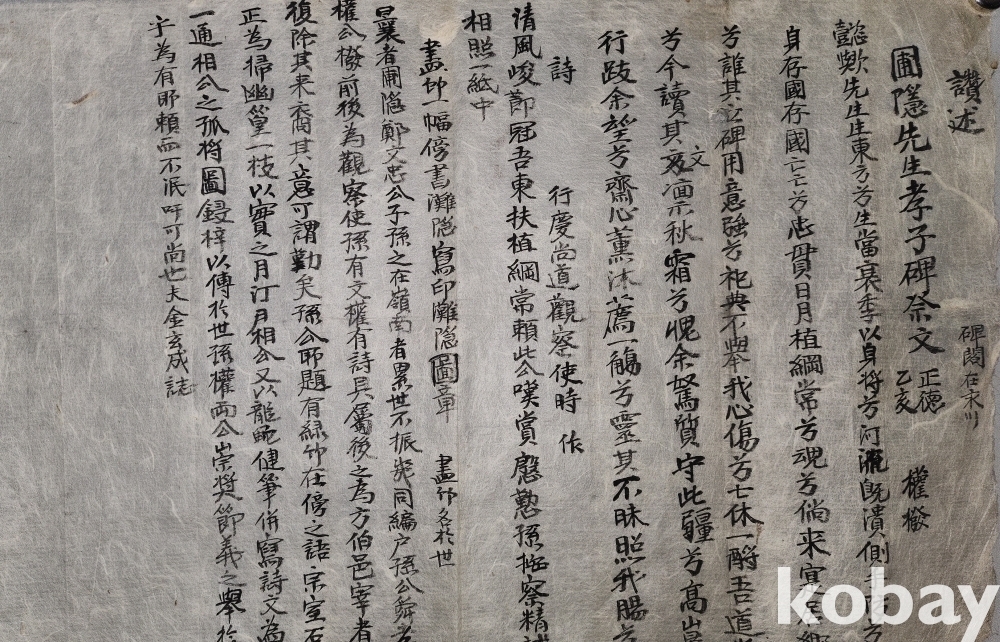 讚述
圃隱先生孝子碑祭文 正德乙亥 權撥
碑閣在永川
懿歟先生生東方兮生當衰季以身將兮河流既潰側手
身存國存國亡亡兮忠貫日月植綱常兮魂兮倘來寔
兮誰其立碑用意强兮祀典不擧我心傷兮亡休一酹吾道
兮今讀其文面示秋霜兮愧余駑質守此疆兮高
行跂余望兮齋心薰沐薦一觴兮靈其不昧照我腸兮
詩 行慶尚道觀察使時作
清風峻節冠吾東扶植綱常賴此公嘆賞慇懃孫按察精
相照一紙中
畫竹一幅傍書灘隱寫印灘隱圖章 畫竹名於世
曩者圃隱鄭文忠公子孫之在嶺南者累世不振夷同編户孫公舜孝
權公撥前後為觀察使孫有文權有詩具屬後之為方伯邑宰者
復除其來裔其意可謂勤矣孫公所題有綠竹在傍之語宗室石
正為掃幽篁一枝以實之月汀月相公又以龍蛇健筆併寫詩文為
一通相公之孤將圖鋟梓以傳於世孫權兩公崇奬節義之擧於
乎為有所賴而不泯吁可尚也夫金玄成誌
kobay